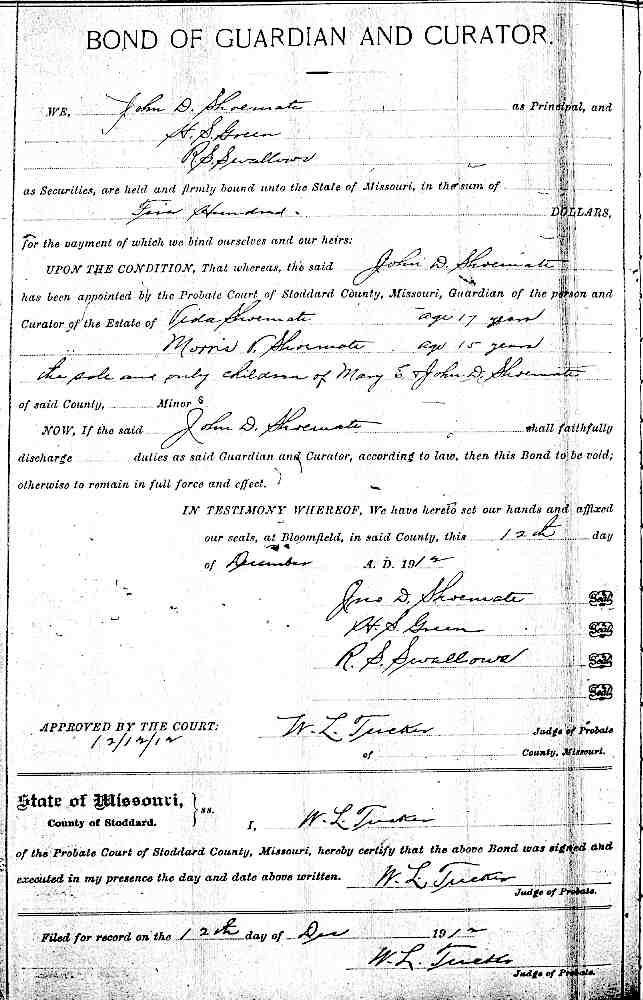 BOND OF GUARDIAN AND CURATOR.
WE, John D. Shoemate as Principal, and
H. S. Green
R. S. Swallows
as Securities, are held and firmly bound unto the State of Missouri, in the sum of
Five Hundred. DOLLARS,
for the payment of which we bind ourselves and our heirs:
UPON THE CONDITION, That whereas, the said John D. Shoemate
has been appointed by the Probate Court of Stoddard County, Missouri, Guardian of the person and
Curator of the Estate of Veda Shoemate age 17 years
Morris Shoemate age 15 years
the sole and only children of Mary E & John D. Shoemate
of said County, Minor s
NOW, If the said John D. Shoemate shall faithfully
discharge duties as said Guardian and Curator, according to law, then this Bond to be void;
otherwise to remain in full force and effect.
IN TESTIMONY WHEREOF, We have hereto set our hands and affixed
our seals, at Bloomfield, in said County, this 12th day
of December A. D. 1912
Jno D. Shoemate Seal
H. S. Green Seal
R. S. Swallows Seal
Seal
APPROVED BY THE COURT: W. L. Tucker Judge of Probate
12/12/12 of County, Missouri.
State of Missouri, } ss.
County of Stoddard. I, W. L. Tucker
of the Probate Court of Stoddard County, Missouri, hereby certify that the above Bond was signed and
executed in my presence the day and date above written. W. L. Tucker
Judge of Probate.
Filed for record on the 12th day of Dec 1912
W. L. Tucker
Judge of Probate.